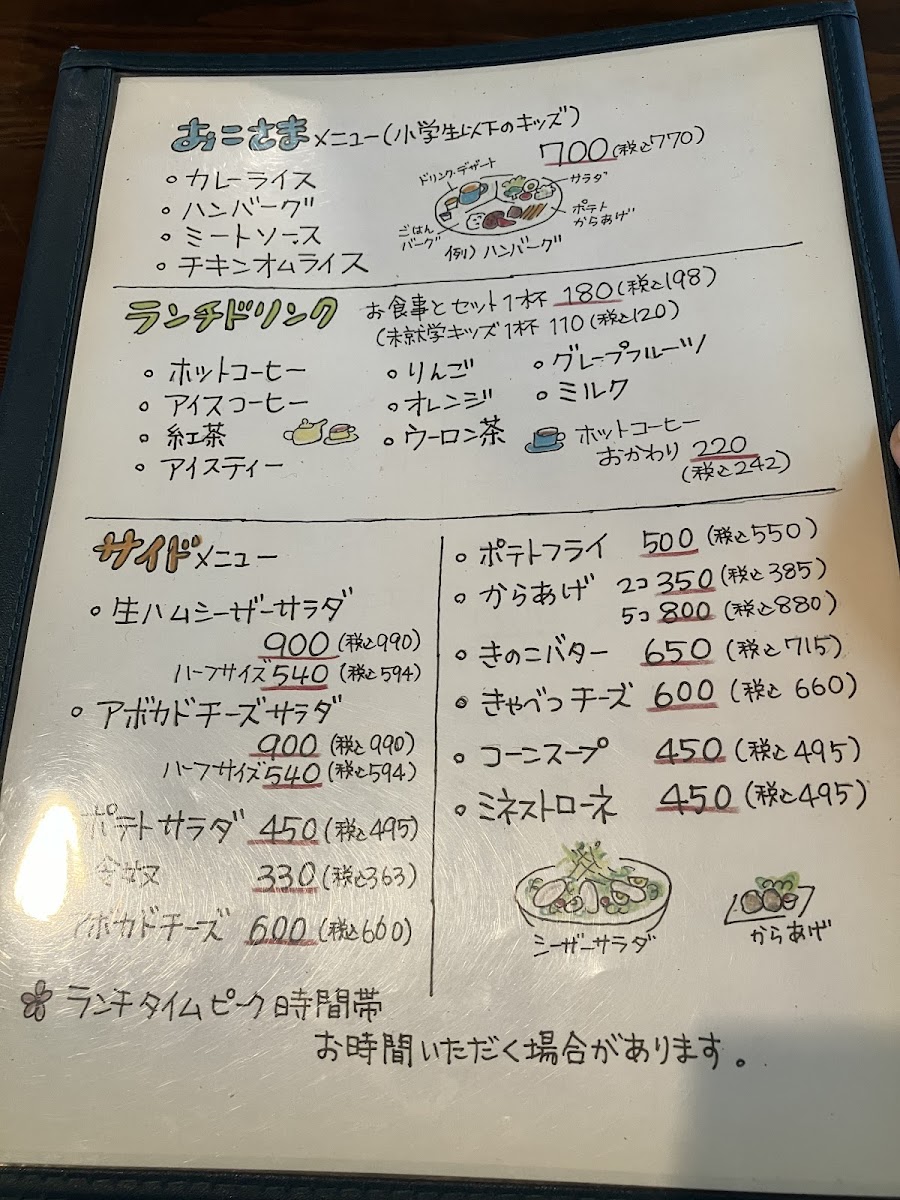 おこさまメニュー(小学生以下のキッズ)
700(税込770)
・カレーライス
・ハンバーグ
・ミートソース
・チキンオムライス
ドリンク・デザート
サラダ
ポテト
からあげ
ごはん
バーグ
例)ハンバーグ
ランチドリンク
お食事とセット1杯 180(税込198)
(未就学キッズ1杯 110(税込120)
・ホットコーヒー
・アイスコーヒー
・紅茶
・アイスティー
・りんご
・オレンジ
・ウーロン茶
・グレープフルーツ
・ミルク
ホットコーヒー
おかわり 220
(税込242)
サイドメニュー
・生ハムシーザーサラダ
900(税込990)
ハーフサイズ540(税込594)
・アボカドチーズサラダ
900(税込990)
ハーフサイズ540(税込594)
ポテトサラダ 450(税込495)
330(税込363)
アボカドチーズ 600(税込660)
・ポテトフライ 500(税込550)
・からあげ 2コ 350(税込385)
5コ 800(税込880)
・きのこバター 650(税込715)
・きゃべつチーズ 600(税込660)
・コーンスープ 450(税込495)
・ミネストローネ 450(税込495)
シーザーサラダ
からあげ
ランチタイムピーク時間帯
お時間いただく場合があります。